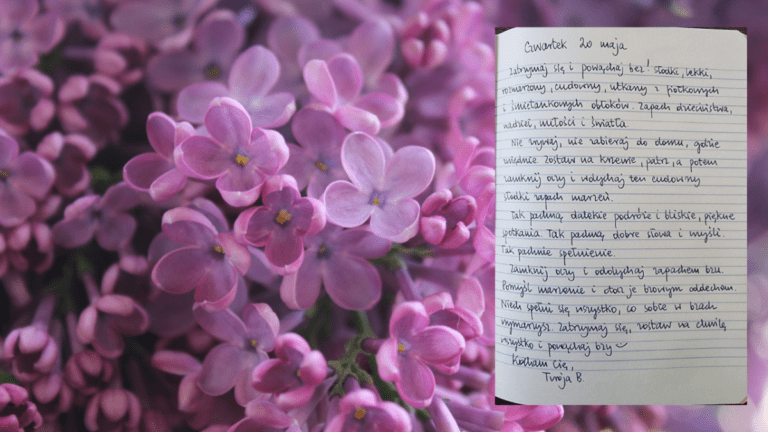 Czwartek 20 maja
Zatrzymaj się i powąchaj bez! Słodki, lekki,
rozmarzony, cudowny, utkany z fiołkowych
i śmietankowych obłoków. Zapach dzieciństwa,
nadziei, miłości i światła.
Nie zrywaj, nie zabieraj do domu, gdzie
więdnie zostaw na krzewie, patrz, a potem
zamknij oczy i wdychaj ten cudowny
słodki zapach marzeń.
Tak pachną dalekie podróże i bliskie, piękne
spotkania. Tak pachną dobre słowa i myśli.
Tak pachnie spełnienie.
Zamknij oczy i oddychaj zapachem bzu.
Pomyśl marzenie i otocz je bzowym oddechem.
Niech spełni się wszystko, co sobie w bzach
wymarzysz. Zatrzymaj się, zostaw na chwilę
wszystko i powąchaj bzy
Kocham Cię,
Twoja B.